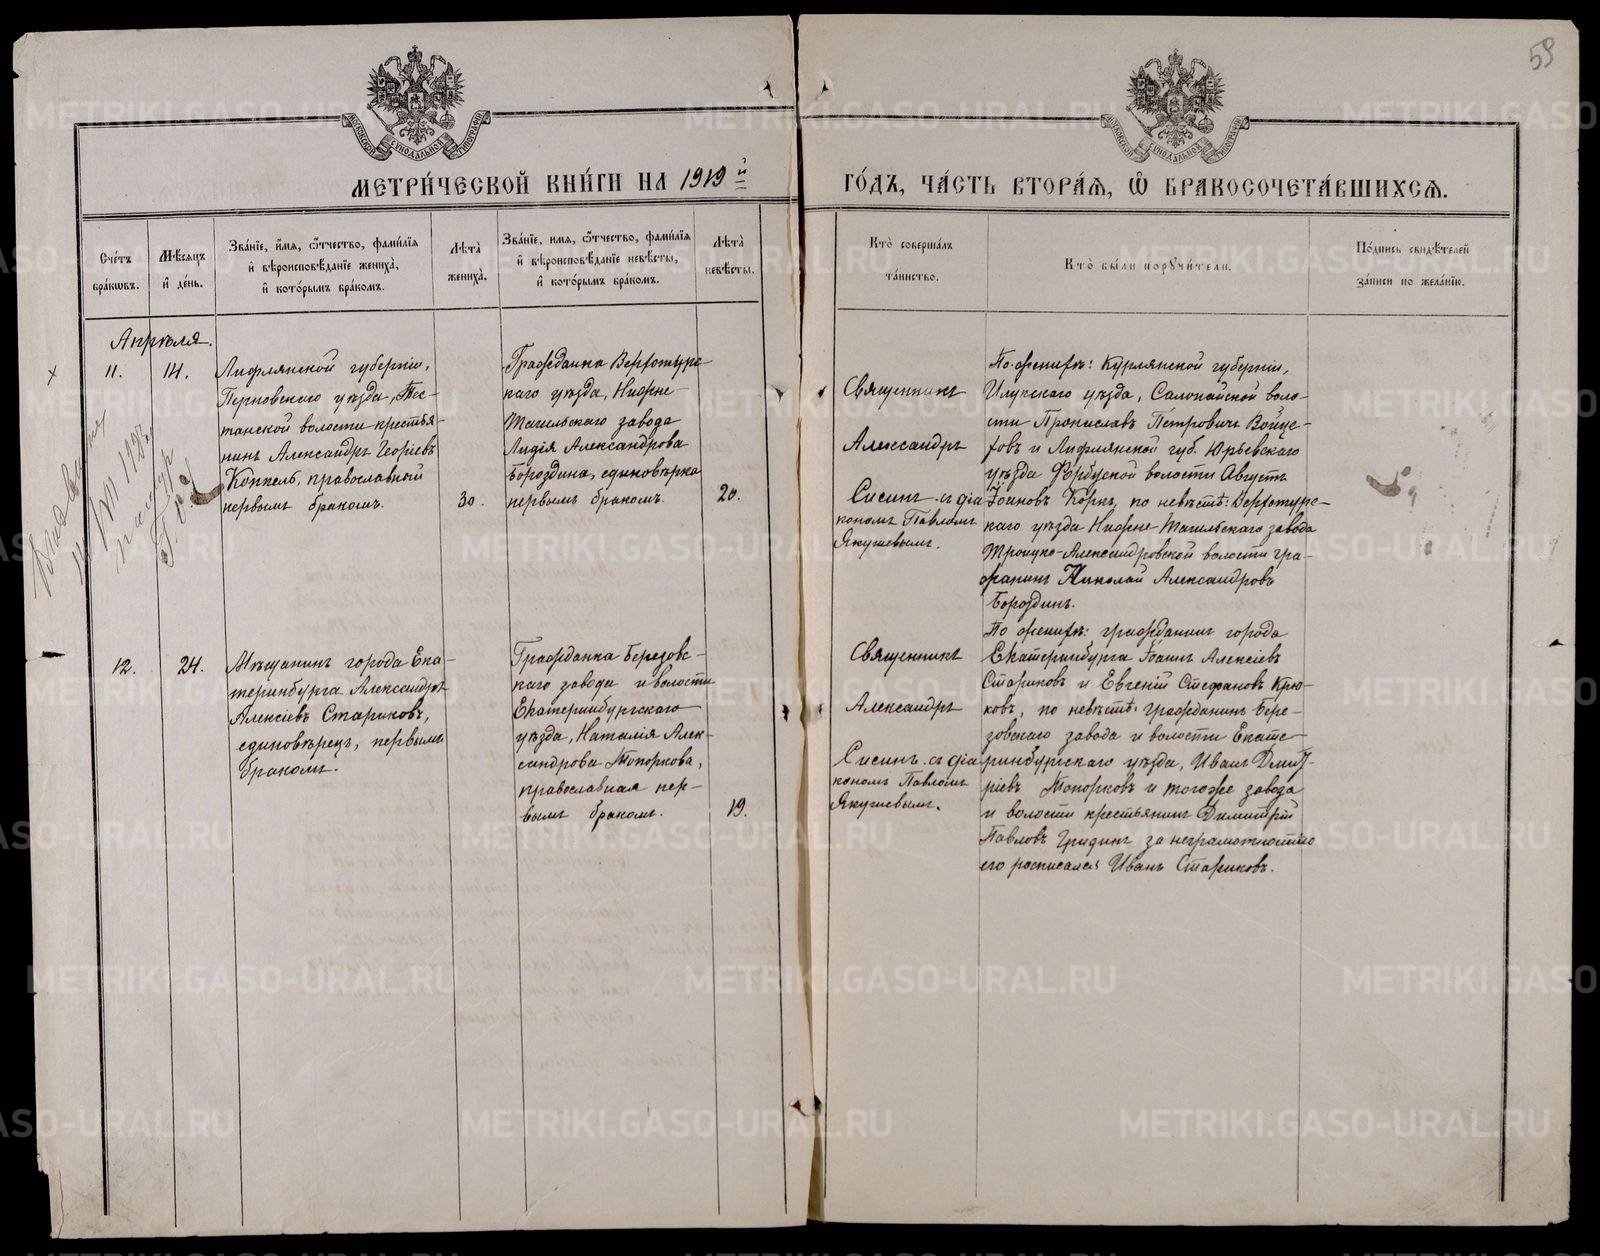 59
МОСКОВСКОЙ СѴНОДАЛЬНОЙ ТИПОГРАФІИ
МОСКОВСКОЙ СѴНОДАЛЬНОЙ ТИПОГРАФІИ
МЕТРИ́ЧЕСКОЙ КНИ́ГИ НА 1919й
ГО́ДЪ, ЧА́СТЬ ВТОРА́Ѧ, Ѡ҆ БРАКОСОЧЕТА́ВШИХСѦ.
Сче́тъ
бра́кѡвъ.
Мѣ́сѧцъ
и҆ де́нь.
Зва́нїе, и҆́мѧ, ѻ҆́тчество, фами́лїѧ
и҆ вѣроисповѣ́данїе жениха̀,
и҆ кото́рымъ бра́комъ.
Лѣ́та
жениха̀.
Зва́нїе, и҆мѧ, ѻ҆́тчество, фами́лїѧ
и҆ вѣроисповѣ́данїе невѣ́сты,
и҆ кото́рымъ бра́комъ.
Лѣ́та
невѣ́сты.
Кто̀ соверша́лъ
та́инство.
Кто̀ бы́ли порꙋчи́тели.
По́дпись свидѣ́телей
за́писи по жела́нїю.
Апрѣля.
11.
14.
Лифлянской губерніи,
Перновскаго уѣзда, Тес-
танской волости крестья-
нинъ Александръ Георгіевъ
Коппель, православный
первымъ бракомъ.
30.
Гражданка Верхотурс-
каго уѣзда, Нижне-
Тагильскаго завода
Лидія Александрова
Бороздина, единовѣрка
первымъ бракомъ.
20.
Священникъ
Александръ
Сисинъ съ діа
кономъ Павломъ
Якушевымъ.
По женихѣ: Курлянской губерніи,
Илукскаго уѣзда, Салонайской воло-
сти Прониславъ Петровичъ Войце-
ховъ и Лифлянской губ. Юрьевскаго
уѣзда Фербуской волости Августъ
Іоанновъ Коркъ, по невѣстѣ: Верхотурс-
каго уѣзда Нижне-Тагильскаго завода
Троицко-Александровской волости гра-
жданинъ Николай Александровъ
Бороздинъ.
12.
24.
Мѣщанинъ города Ека-
теринбурга Александръ
Алексіевъ Стариковъ,
единовѣрецъ, первымъ
бракомъ.
Гражданка Березовс-
каго завода и волости
Екатеринбургскаго
уѣзда, Наталія Алек-
сандрова Топоркова,
православная пер-
вымъ бракомъ.
19.
Священникъ
Александръ
Сисинъ съ діа
кономъ Павломъ
Якушевымъ.
По женихѣ: гражданинъ города
Екатеринбурга Іоаннъ Алексіевъ
Стариковъ и Евгеній Стефановъ Крю-
ковъ, по невѣстѣ: гражданинъ Бере-
зовскаго завода и волости Екате-
ринбургскаго уѣзда, Иванъ Дмит-
ріевъ Топорковъ и тогоже завода
и волости крестьянинъ Димитрій
Павловъ Гридинъ за неграмотностію
его росписался Иванъ Стариковъ.
METRIKI.GASO-URAL.RU